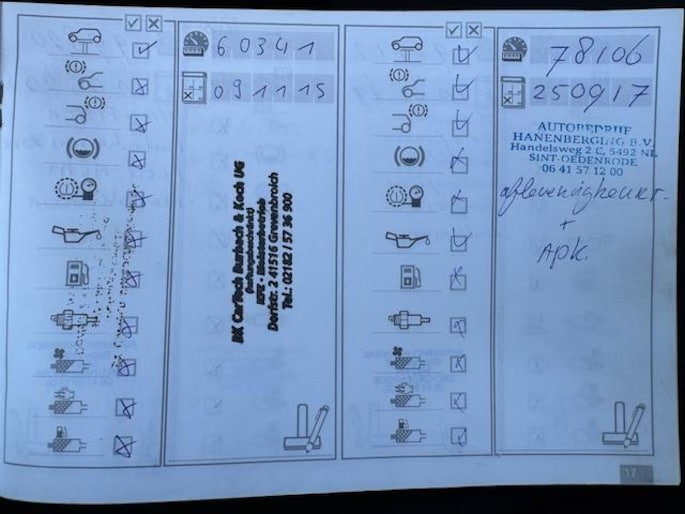 60341
091115
BK CarTech Burbach & Koch UG
(haftungsbeschränkt)
KFZ - Meisterbetrieb
Dorfstr. 2 41516 Grevenbroich
Tel.: 02182 / 57 36 900
78106
250917
AUTOBEDRIJF
HANENBERGING B.V.
Handelsweg 2 C, 5492 NL
SINT-OEDENRODE
06 41 57 12 00
+
APK.
17